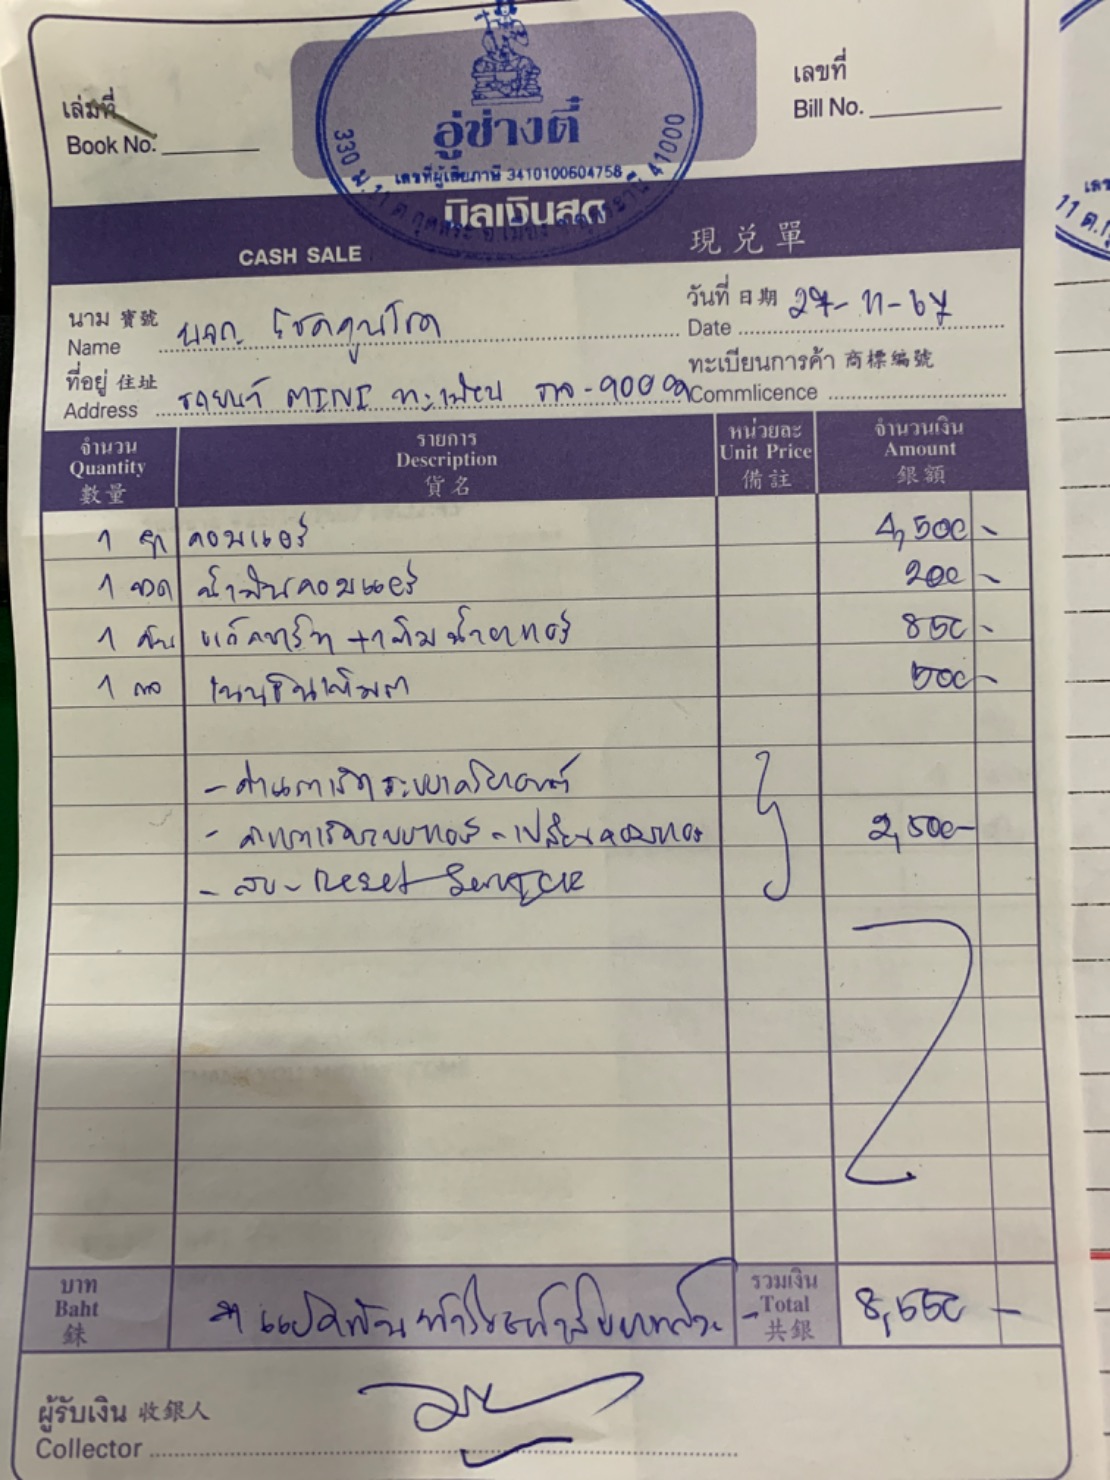 เล่มที่
Book No.
เลขที่
Bill No.
อู่ช่างตี๋
เลขที่ผู้เสียภาษี 3410100604758
330 ม.11 ต.กุดสระ อ.เมือง จ.อุดรธานี 41000
บิลเงินสด
CASH SALE 現兑單
นาม 寶號
Name บจก. โชคคูนโชค
วันที่ 日期 27-11-67
Date
ที่อยู่ 住址
Address รถยนต์ MINI ทะเบียน
ทะเบียนการค้า 商標編號
Commlicence
จำนวน รายการ หน่วยละ จำนวนเงิน
Quantity Description Unit Price Amount
數量 貨名 備註 銀額
1 ลูก คอมแอร์ 4,500 -
1 ขวด น้ำมันคอมแอร์ 200 -
1 850 -
1 500 -
- ค่า
- ค่า 2,500 -
- Reset Service
บาท รวมเงิน
Baht Total 8,550 -
銖 แปดพันห้าร้อยห้าสิบบาทถ้วน 共銀
ผู้รับเงิน 收銀人
Collector